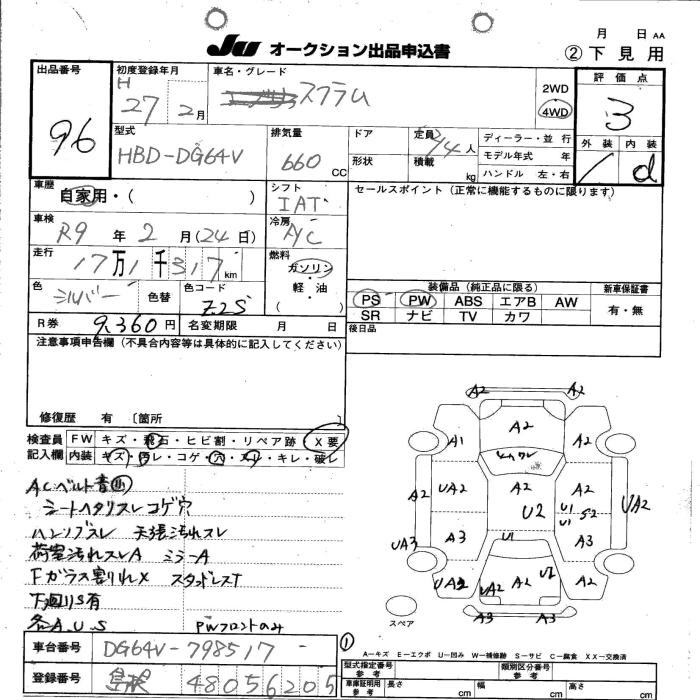 Ju オークション出品申込書
月 日 AA
② 下見用
出品番号
96
初度登録年月
H 27 2月
車名・グレード
スクラム
2WD
4WD
評価点
3
型式
HBD-DG64V
排気量
660 CC
ドア
定員
2/4 人
形状
積載
kg
ディーラー・並行
モデル年式 年
ハンドル 左・右
外装 内装
d
車歴
自家用・( )
シフト
IAT
セールスポイント (正常に機能するものに限ります)
車検
R9 年 2 月(24 日)
冷房
A/C
走行
17万1千317km
燃料
ガソリン
軽油
( )
色
シルバー
色替
色コード
Z2S
装備品(純正品に限る)
新車保証書
PS PW ABS エアB AW
SR ナビ TV カワ
有・無
R券 9,360円
名変期限 月 日
後日品
注意事項申告欄(不具合内容等は具体的に記入してください)
修復歴 有 〔箇所 〕
検査員
記入欄
FW キズ・飛石・ヒビ割・リペア跡・X要
内装 キズ・汚レ・コゲ・穴・スレ・キレ・破レ
ACベルト音小
シートヘタリスレコゲ穴
ハンドルスレ 天張汚れスレ
荷室汚れスレA ミラーA
Fガラス割れX スタッドレスT
下廻りS有
各A.U.S
PWフロントのみ
A2 A2
A2
A1 A2
ヒビワレ
A2 UA2 A2 U1 S2 UA2
U2 U1
UA3 A3 U1 A3
UA2 UA2 A2 U2 A2
A3 A3
スペア
①
A—キズ E—エクボ U—凹み W—補修跡 S—サビ C—腐食 XX—交換済
車台番号 DG64V-798517
登録番号 島根 480 い 6205
型式指定番号
参考
類別区分番号
参考
車庫証明用
参考
長さ cm 幅 cm 高さ cm